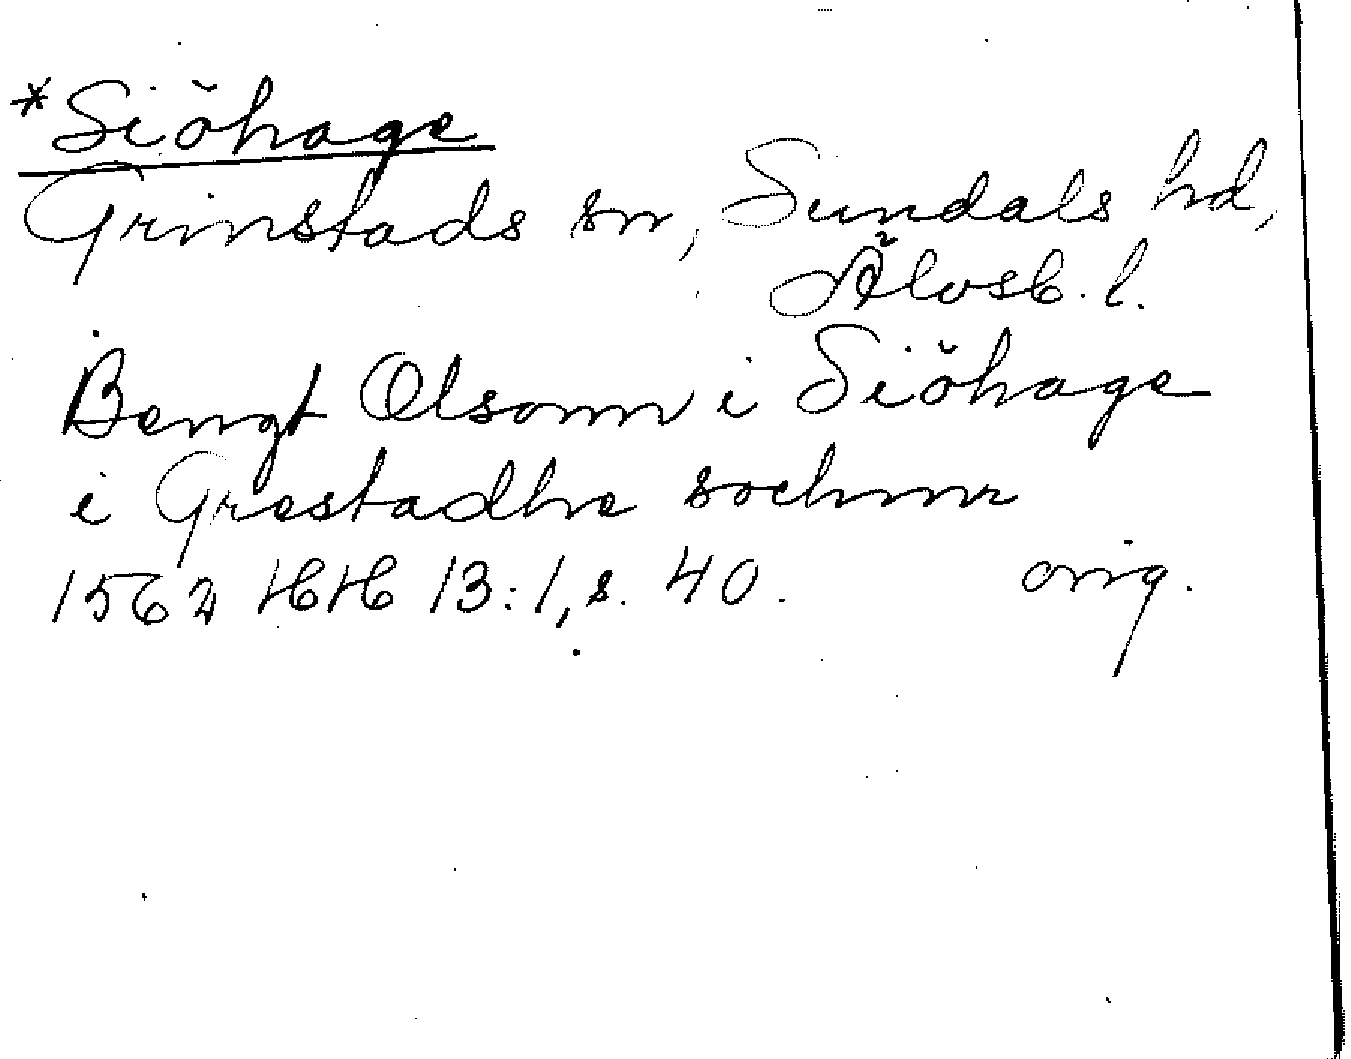 *Siöhage
Grinstads sn, Sundals hd,
Älvsb. l.
Bengt Olsonn i Siöhage
i Grestadhe sochnn
1562 HH 13:1, s. 40. orig.